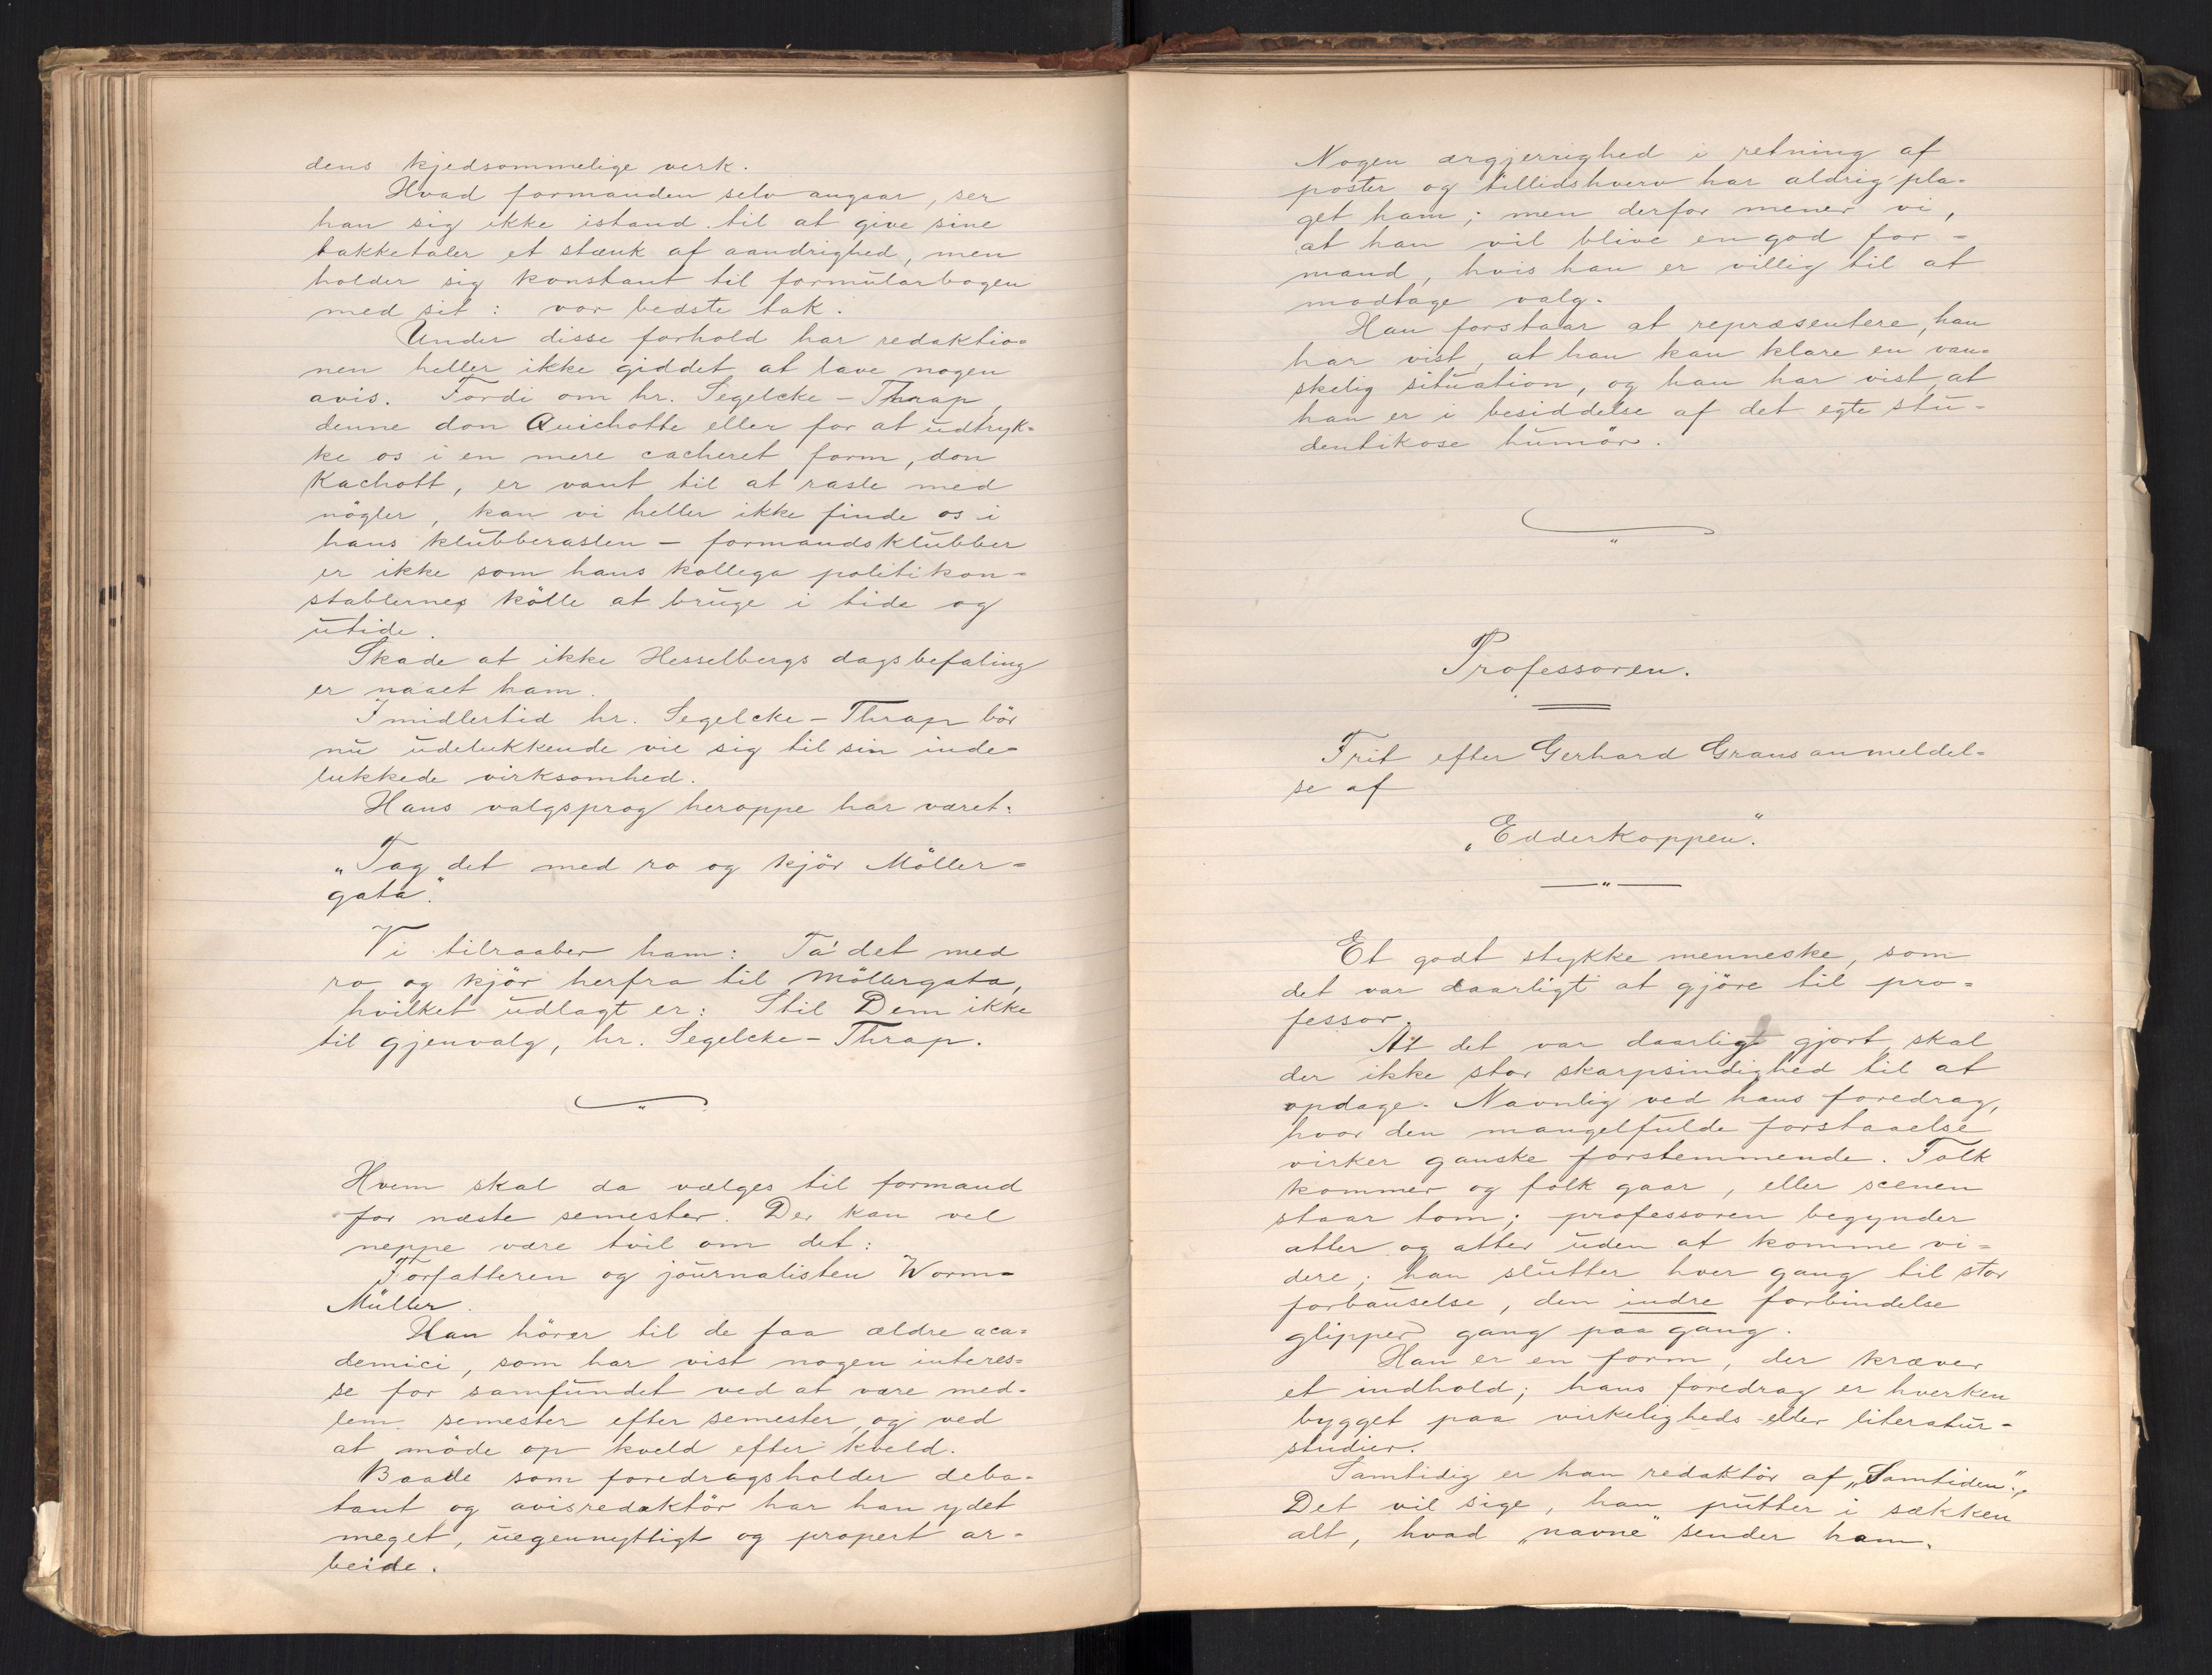 dens kjedsommelige verk.
Hvad formanden selv angaar, ser
han sig ikke istand til at give sine
takketaler et stænk af aandrighed, men
holder sig konstant til formularbogen
med sit: vor bedste tak.
Under disse forhold har redaktio-
nen heller ikke giddet at lave nogen
avis. Fordi om hr. Segelcke-Thrap,
denne don Quichotte eller for at udtryk-
ke os i en mere cacheret form, don
Kachott, er vant til at rasle med
nögler, kan vi heller ikke finde os i
hans klubberaslen - formandsklubber
er ikke som hans kollega politikon-
stablernes kölle at bruge i tide og
utide.
Skade at ikke Hesselbergs dagsbefaling
er naaet ham.
Imidlertid hr. Segelcke-Thrap bör
nu udelukkende vie sig til sin inde-
lukkede virksomhed.
Hans valgsprog heroppe har været:
„Tag det med ro og kjör Möller-
gata".
Vi tilraaber ham: Ta' det med
ro og kjör herfra til Möllergata,
hvilket udlagt er: Stil Dem ikke
til gjenvalg, hr. Segelcke-Thrap.
Hvem skal da vælges til formand
for næste semester. Der kan vel
neppe være tvil om det:
Forfatteren og journalisten Worm-
Müller.
Han hörer til de faa ældre aca-
demici, som har vist nogen interes-
se for samfundet ved at være med-
lem semester efter semester og ved
at möde op kveld efter kveld.
Baade som foredragsholder deba-
tant og avisredaktör har han ydet
meget, uegennyttigt og propert ar-
beide.
Nogen ærgjerrighed i retning af
poster og tillidshverv har aldrig pla-
get ham; men derfor mener vi,
at han vil blive en god for-
mand, hvis han er villig til at
modtage valg.
Han forstaar at repræsentere, han
har vist, at han kan klare en van-
skelig situation, og han har vist at
han er i besiddelse af det egte stu-
dentikose humör.
Professoren.
Frit efter Gerhard Grans anmeldel-
se af
„Edderkoppen".
Et godt stykke menneske, som
det var daarligt at gjöre til pro-
fessor.
At det var daarlig gjort, skal
der ikke stor skarpsindighed til at
opdage. Navnlig ved hans foredrag,
hvor den mangelfulde forstaaelse
virker ganske forstemmende. Folk
kommer og folk gaar, eller scenen
staar tom; professoren begynder
atter og atter uden at komme vi-
dere; han slutter hver gang til stor
forbauselse, den indre forbindelse
glipper gang paa gang.
Han er en form, der kræver
et indhold; hans foredrag er hverken
bygget paa virkeligheds- eller literatur-
studier.
Samtidig er han redaktör af „Samtiden".
Det vil sige, han putter i sækken
alt, hvad „navne" sender ham.